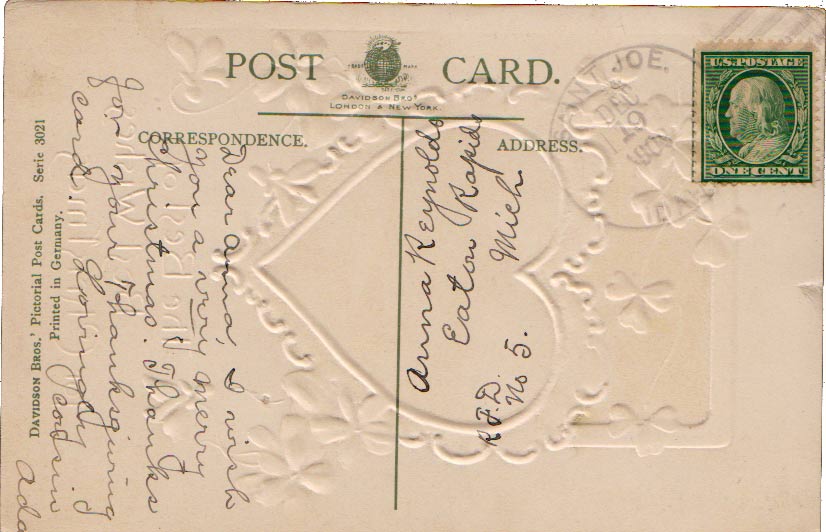 POST CARD.
TRADE MARK
DAVIDSON BROS
LONDON & NEW YORK.
CORRESPONDENCE.
ADDRESS.
DAVIDSON BROS.' Pictorial Post Cards. Serie 3021
Printed in Germany.
Dear Anna, I wish
you a very merry
Christmas. Thanks
for your Thanksgiving
card. Lovingly
cousin
Ada
Anna Reynolds
Eaton Rapids
Mich
R.F.D.
No 5.
SAINT JOE,
DEC
19
IND.
U.S. POSTAGE
ONE CENT